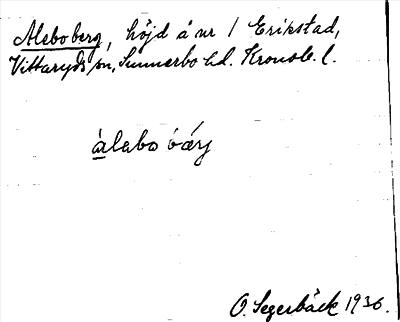 Aleboberg, höjd å nr 1 Erikstad,
Vittaryds sn, Sunnerbo hd. Kronob. l.
álabo bærj
O. Segerbäck 1936.